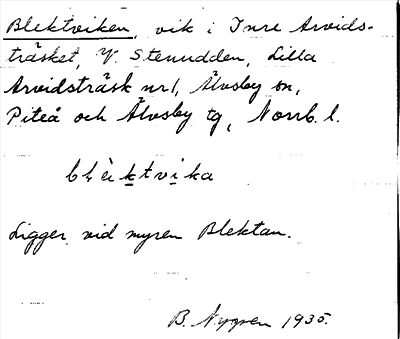 Blektviken, vik i Inre Arvids-
träsket, V. Stenudden, Lilla
Arvidsträsk nr 1, Älvsby sn,
Piteå och Älvsby tg, Norrb. l.
blèktvika
Ligger vid myren Blektan.
B. Nygren 1935.